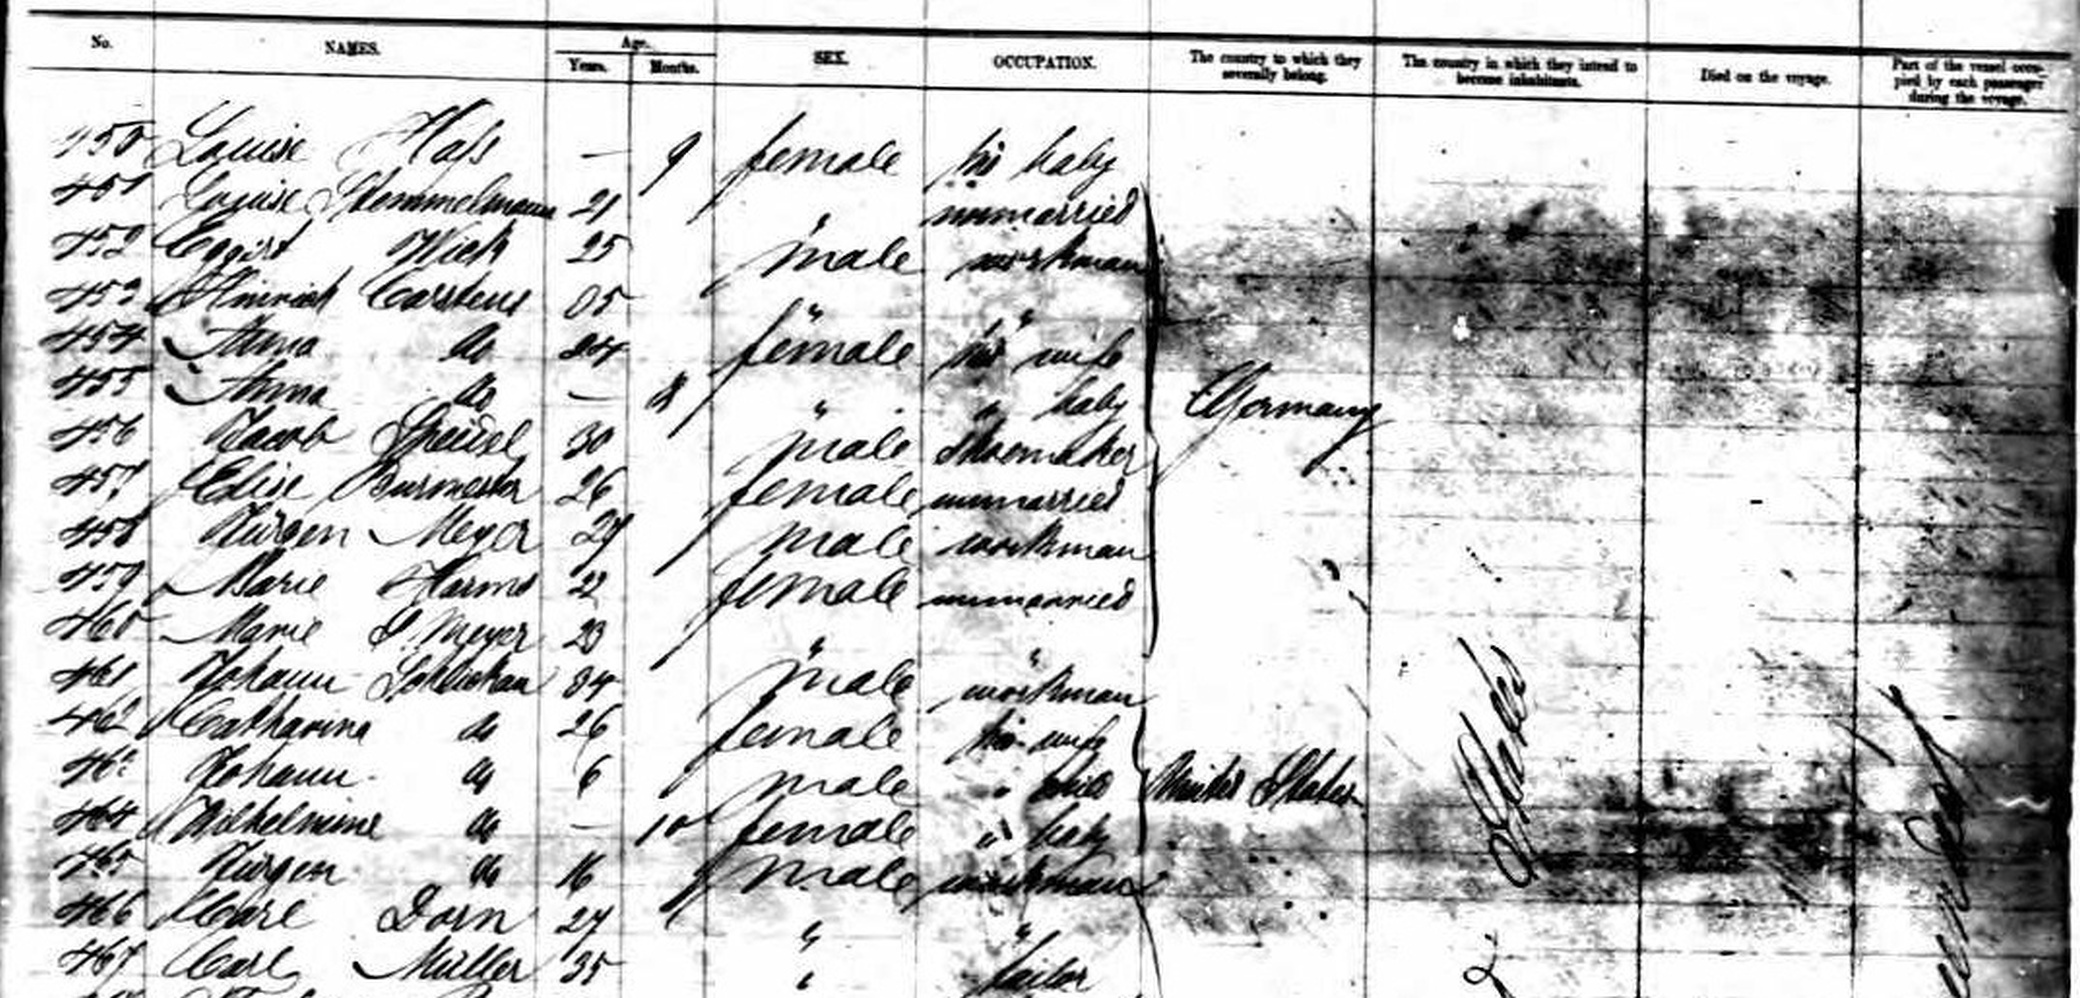 No. NAMES. Age. Years. Months. SEX. OCCUPATION. The country to which they severally belong. The country in which they intend to become inhabitants. Died on the voyage. Part of the vessel occupied by each passenger during the voyage.
450 Louise Hass — 9 female his baby
451 Louise Stemmelmann 21 " unmarried
452 Eggert Wieh 25 male workman
453 Hinrich Carstens 35 " "
454 Anna do 24 female his wife
455 Anna do — 8 " " baby Germany
456 Jacob 30 male shoemaker
457 Elise Burmester 26 female unmarried
458 Jürgen Meyer 29 male workman
459 Marie Harms 22 female unmarried
460 Marie S. Meyer 23 " "
461 Johann 34 male workman
462 Catharina do 26 female his wife
463 Johann do 6 male " child United States
464 Wilhelmine do — 10 female " baby
465 Jürgen do 16 male workman
466 Carl Dorn 27 " "
467 Carl Müller 35 " tailor
States